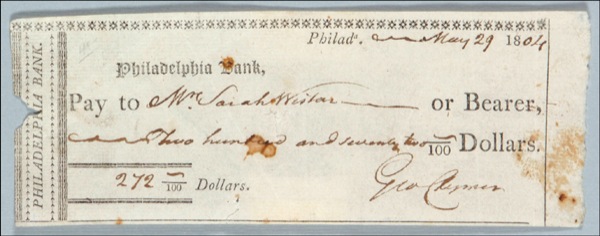 PHILADELPHIA BANK.
Philadª. May 29 1804
Philadelphia Bank,
Pay to Mrs Sarah Wistar or Bearer,
Two hundred and seventy two —/100 Dollars.
272 —/100 Dollars.
Geo Clymer